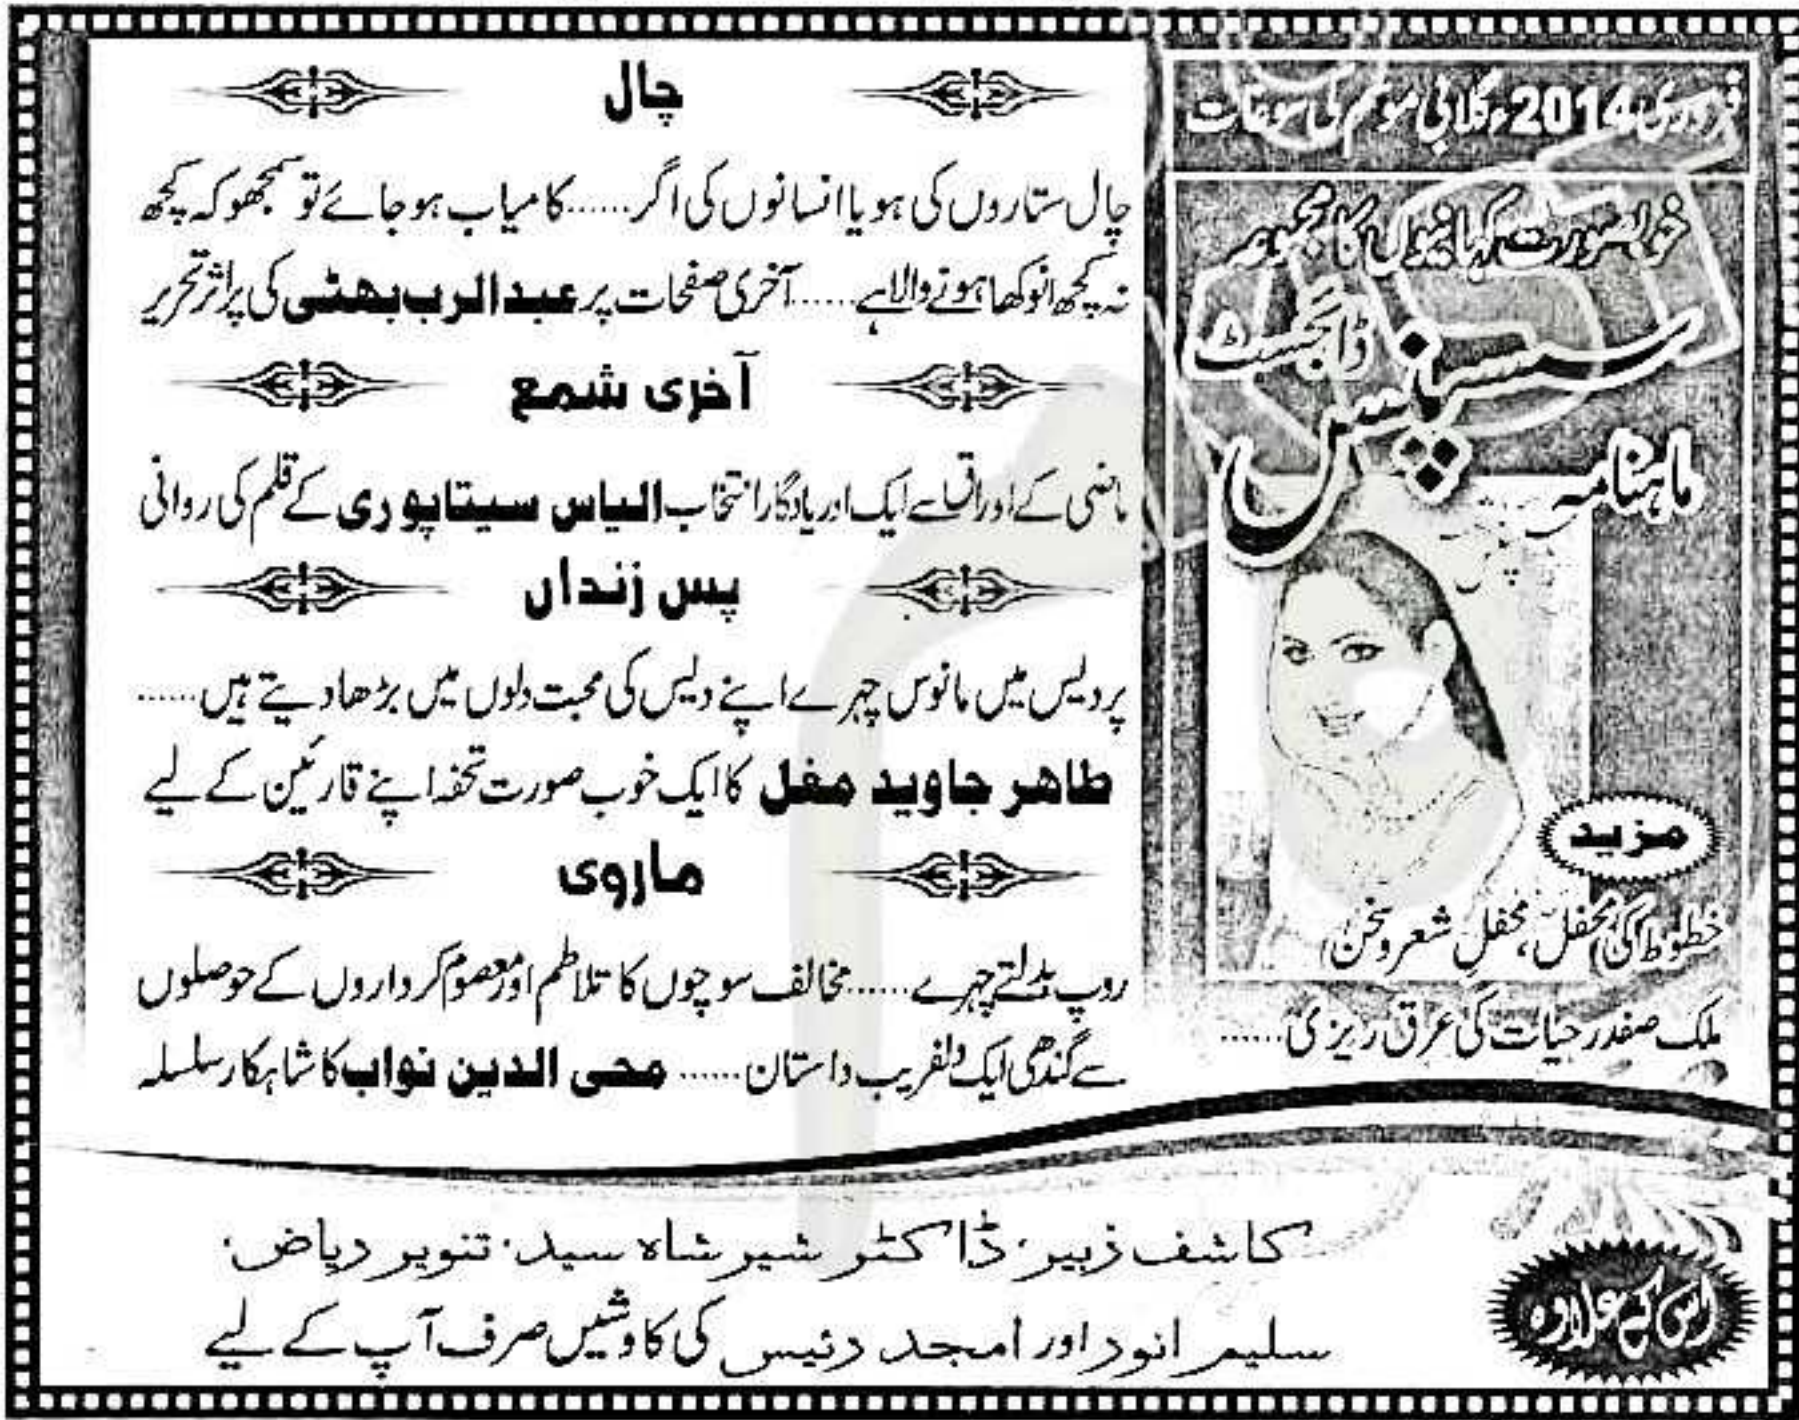 فروری 2014ء گلابی موسم کی سوغات
خوبصورت کہانیوں کا مجموعہ
سسپنس ڈائجسٹ
ماہنامہ
مزید
خطوط کی محفل، محفلِ شعر و سخن
ملک صفدر حیات کی عرق ریزی......
چال
چال ستاروں کی ہو یا انسانوں کی اگر......کامیاب ہو جائے تو سمجھو کہ کچھ
نہ کچھ انوکھا ہونے والا ہے......آخری صفحات پر عبدالرب بھٹی کی پراثر تحریر
آخری شمع
ماضی کے اوراق سے ایک اور یادگار انتخاب الیاس سیتاپوری کے قلم کی روانی
پس زنداں
پردیس میں مانوس چہرے اپنے دیس کی محبت دلوں میں بڑھا دیتے ہیں......
طاہر جاوید مغل کا ایک خوب صورت تحفہ اپنے قارئین کے لیے
ماروی
روپ بدلتے چہرے......مخالف سوچوں کا تلاطم اور معصوم کرداروں کے حوصلوں
سے گندھی ایک دلفریب داستان...... محی الدین نواب کا شاہکار سلسلہ
اس کے علاوہ
کاشف زبیر، ڈاکٹر شیر شاہ سید، تنویر ریاض،
سلیم انور اور امجد رئیس کی کاوشیں صرف آپ کے لیے